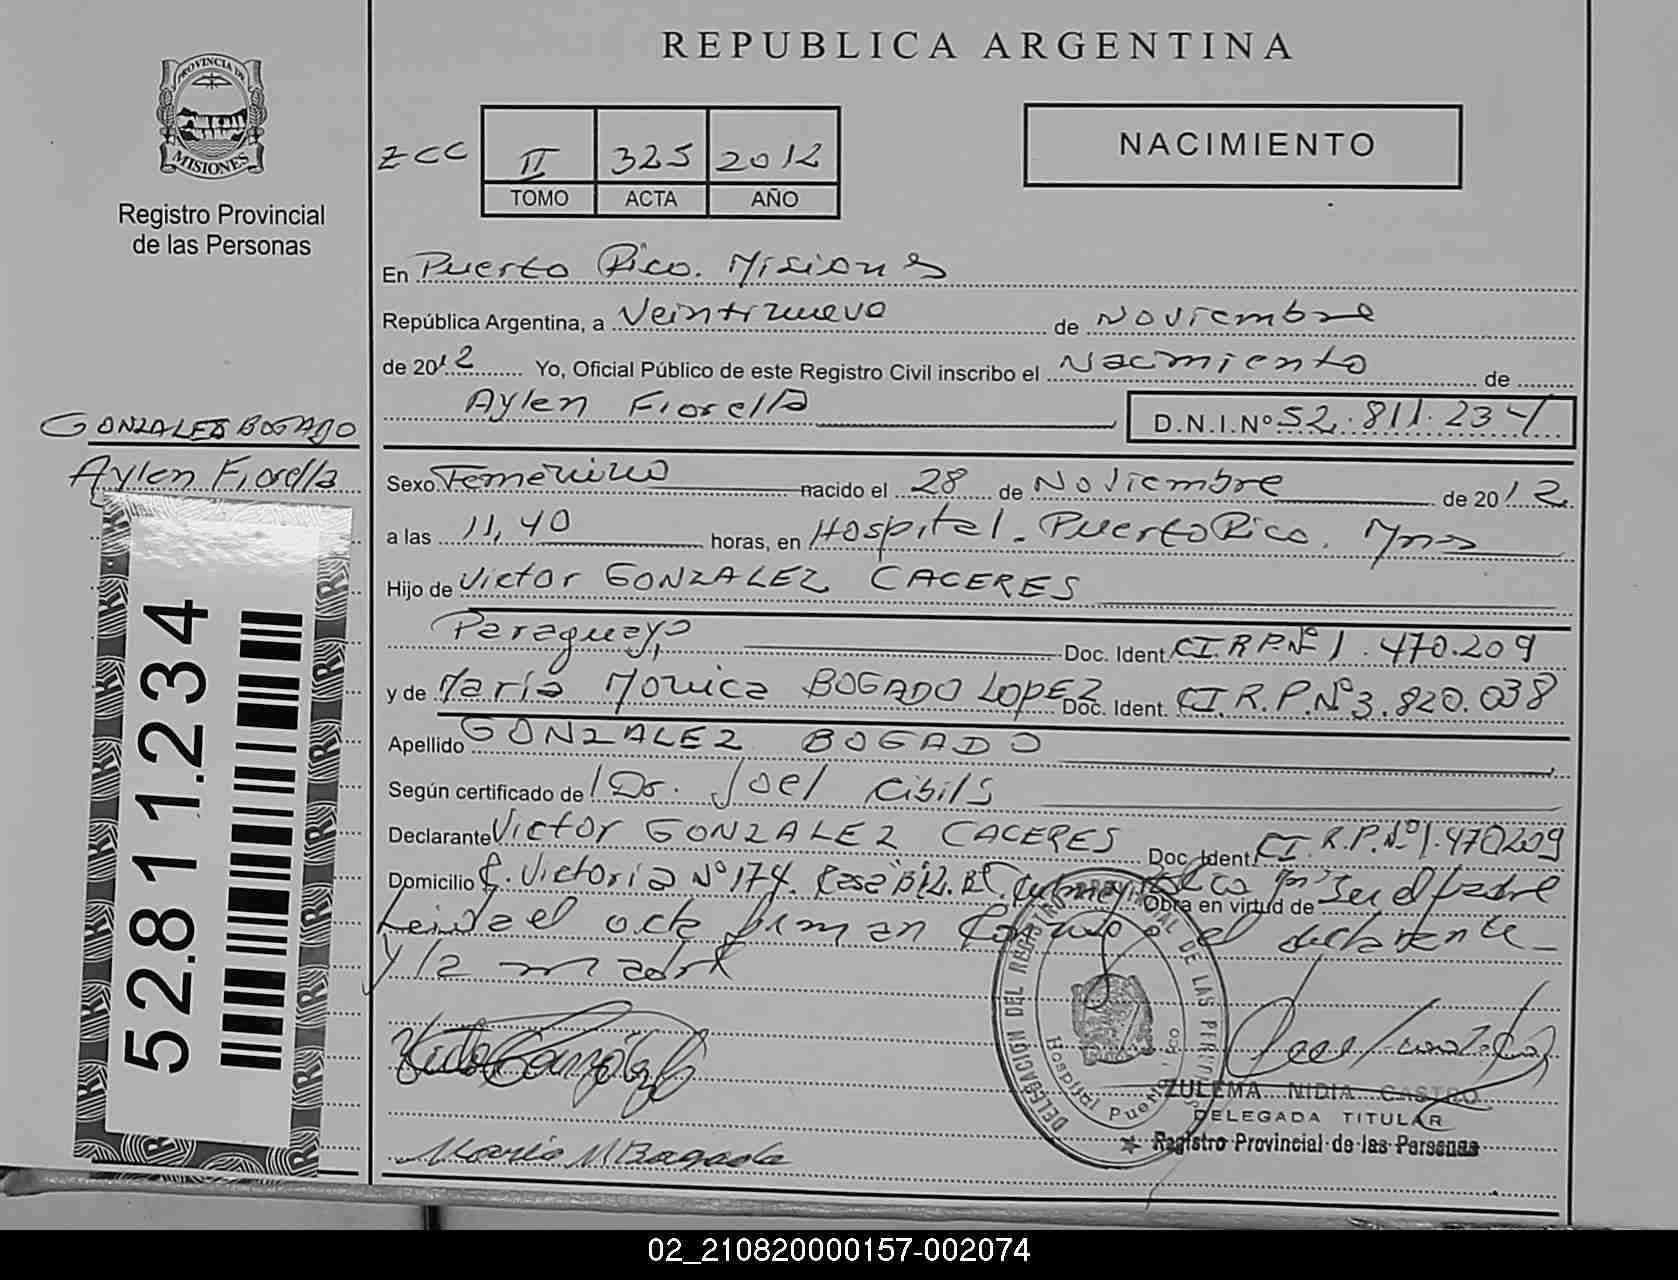 REPUBLICA ARGENTINA
PROVINCIA DE
MISIONES
Registro Provincial
de las Personas
NACIMIENTO
ZCC II 325 2012
TOMO ACTA AÑO
En Puerto Rico. Misiones
República Argentina, a Veintinueve de Noviembre
de 2012 Yo, Oficial Público de este Registro Civil inscribo el Nacimiento de
Aylen Fiorella D.N.I.Nº 52.811.234
GONZALEZ BOGADO
Aylen Fiorella
Sexo Femenino nacido el 28 de Noviembre de 2012
a las 11,40 horas, en Hospital. Puerto Rico. Mnes
Hijo de Victor GONZALEZ CACERES
Paraguayo Doc. Ident. CI.R.P.Nº 1.470.209
y de María Monica BOGADO LOPEZ Doc. Ident. CI.R.P.Nº 3.820.038
Apellido GONZALEZ BOGADO
Según certificado de Dr. Joel Cibils
Declarante Victor GONZALEZ CACERES Doc. Ident. CI.R.P.Nº 1.470209
Domicilio C. Victoria Nº 174. Obra en virtud de Ser el padre
Leida el acta firman el declarante
y la madre
52.811.234
DELEGACIÓN DEL REGISTRO PROVINCIAL DE LAS PERSONAS
Hospital Puerto Rico
Maria M Bogado
ZULEMA NIDIA CASTRO
DELEGADA TITULAR
Registro Provincial de las Personas
02_210820000157-002074